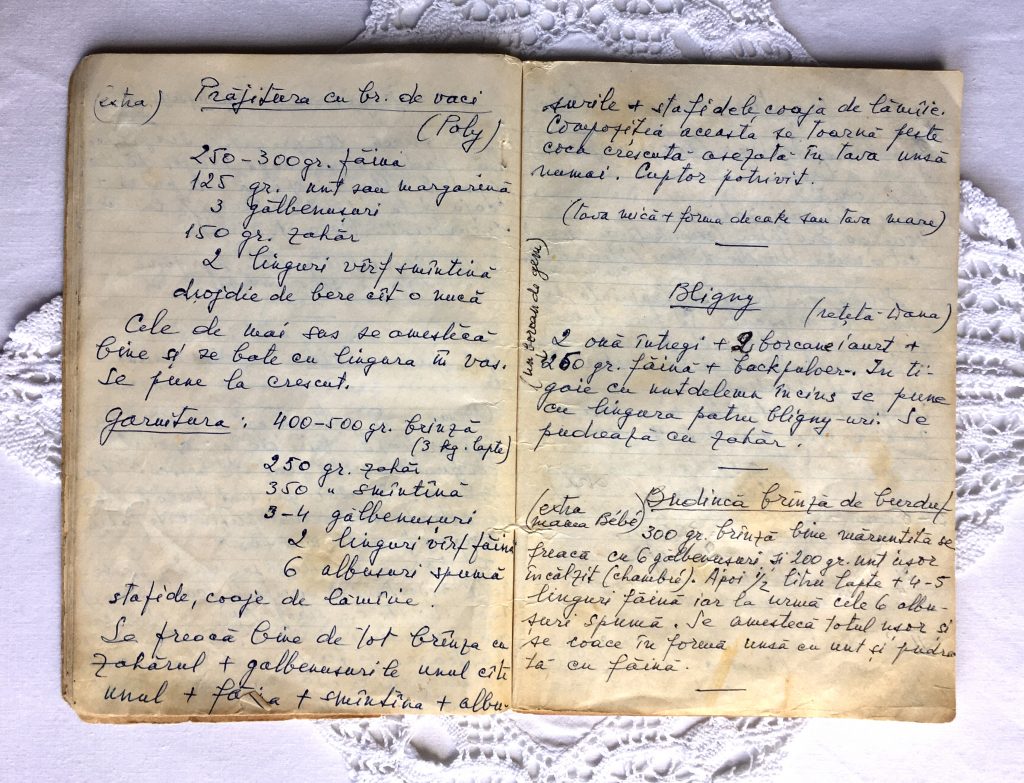 (extra) Prăjitura cu br. de vaci
(Poly)
250-300 gr. făină
125 gr. unt sau margarină
3 gălbenușuri
150 gr. zahăr
2 linguri vîrf smîntînă
drojdie de bere cît o nucă
Cele de mai sus se amestecă
bine și se bate cu lingura în vas.
Se pune la crescut.
Garnitura: 400-500 gr. brînză
(3 kg. lapte)
250 gr. zahăr
350 " smîntînă
3-4 gălbenușuri
2 linguri vîrf făină
6 albușuri spumă
stafide, coaje de lămîie.
Se freacă bine de tot brînza cu
zahărul + gălbenușurile unul cîte
unul + făina + smîntîna + albu-
șurile + stafidele, coaja de lămîie.
Compoziția aceasta se toarnă peste
coca crescută așezată în tava unsă
numai. Cuptor potrivit.
(tava mică + forma de cake sau tava mare)
Bligny
(rețeta Dana)
(un borcan de gem)
2 ouă întregi + 2 borcane iaurt +
250 gr. făină + backpulver. In ti-
gaie cu untdelemn încins se pune
cu lingura patru bligny-uri. Se
pudrează cu zahăr.
Budincă brînză de burduf
(extra
mama Bébé)
300 gr. brînză bine mărunțită se
freacă cu 6 gălbenușuri și 200 gr. unt ușor
încălzit (chambré). Apoi 1/2 litru lapte + 4-5
linguri făină iar la urmă cele 6 albu-
șuri spumă. Se amestecă totul ușor și
se coace în formă unsă cu unt și pudra
tă cu făină.